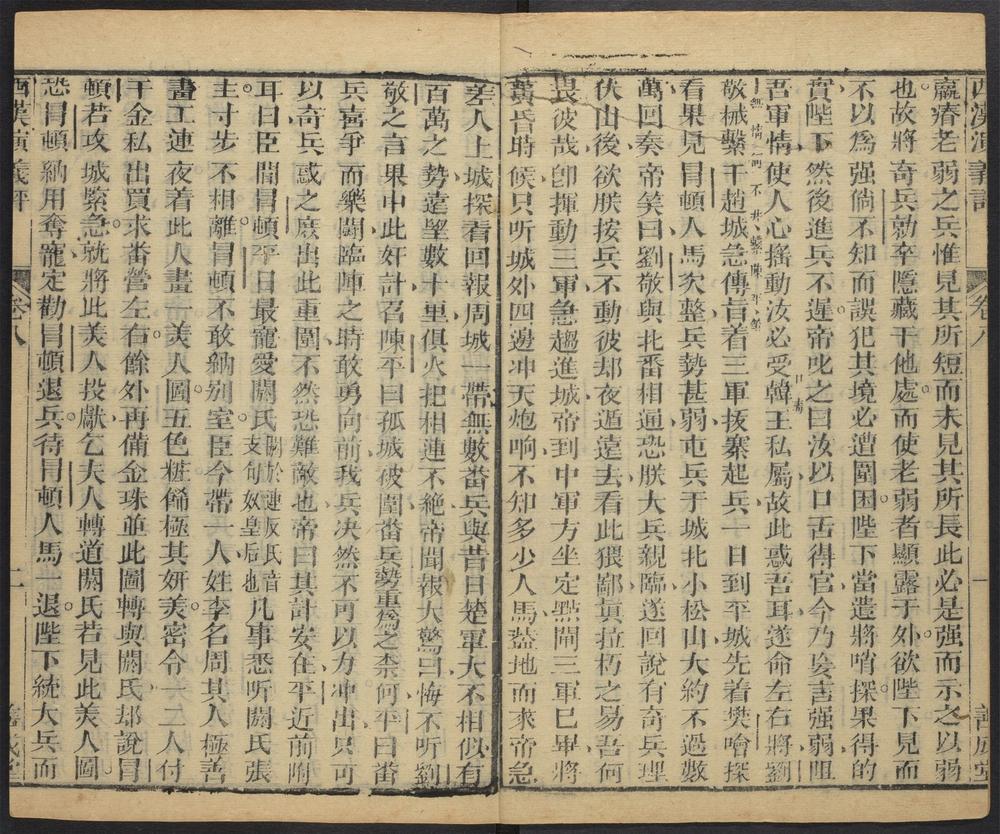 西漢演義評
卷八
一
善成堂
羸瘠老弱之兵惟見其所短而未見其所長此必是强而示之以弱
也故將奇兵勍卒隱藏于他處而使老弱者顯露于外欲陛下見而
不以爲强倘不知而誤犯其境必遭圍困陛下當遣將哨探果得的
實陛下然後進兵不遲帝叱之曰汝以口舌得官今乃妄言强弱阻
吾軍情使人心搖動汝必受韓王私屬故此惑吾耳遂命左右將劉
敬械繫于趙城急傳旨着三軍拔寨起兵一日到平城先着樊噲探
看果見冒頓人馬欠整兵勢甚弱屯兵于城北小松山大約不過數
萬回奏帝笑曰劉敬與北番相通恐朕大兵親臨遂回說有奇兵理
伏由後欲朕按兵不動彼却夜遁遠去看此猥鄙真拉朽之易吾何
畏彼哉卽揮動三軍急趨進城帝到中軍方坐定點閘三軍已畢將
黃昏時候只听城外四邊冲天炮响不知多少人馬葢地而來帝急
差人上城探看回報周城一帶無數畨兵與昔日楚軍大不相似有
百萬之勢遠望數十里俱火把相連不絶帝聞報大驚曰悔不听劉
敬之言果中此奸計召陳平曰孤城被圍畨兵勢重爲之柰何平曰畨
兵喜爭而樂鬪臨陣之時敢勇向前我兵决然不可以力冲出只可
以奇兵惑之庶出此重圍不然恐難敵也帝曰其計安在平近前附
耳曰臣聞冒頓平日最寵愛閼氏支句奴皇后也凡事悉听閼氏張
主寸步不相離冒頓不敢納别室臣今帶一人姓李名周其人極善
畫工連夜着此人畫一美人圖五色粧俻極其妍美密令一二人付
千金私出買求畨營左右餘外再備金珠並此圖轉與閼氏却說冒
頓若攻城緊急就將此美人投獻乞夫人轉道閼氏若見此美人圖
恐冒頓納用奪寵定勸冒頓退兵待冒頓人馬一退陛下統大兵而
西漢演義評
卷八
二
善成堂